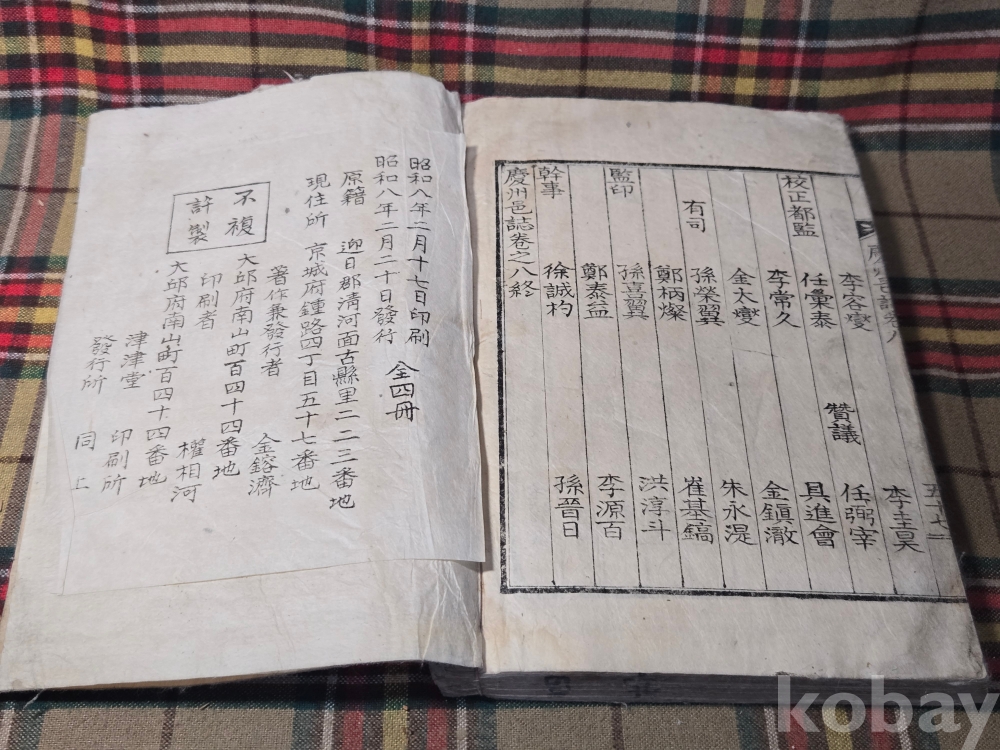 慶州邑誌卷八
五十七
李容燮 贊議 任弼宰
校正都監 任彙泰 具進會
李常久 金鎭澈
金太燮 朱永湜
有司 孫榮翼 崔基鎬
鄭柄燦 洪淳斗
監印 孫喜翼 李源百
鄭泰益
幹事 徐誠杓 孫晉日
慶州邑誌卷之八終
昭和八年二月十七日印刷
昭和八年二月二十日發行 全四冊
原籍 迎日郡淸河面古縣里二二三番地
現住所 京城府鍾路四丁目五十七番地
著作兼發行者 金鎔濟
不複
許製
大邱府南山町百四十四番地
印刷者 權相河
大邱府南山町百四十四番地
津津堂 印刷所
發行所 同上
kobay